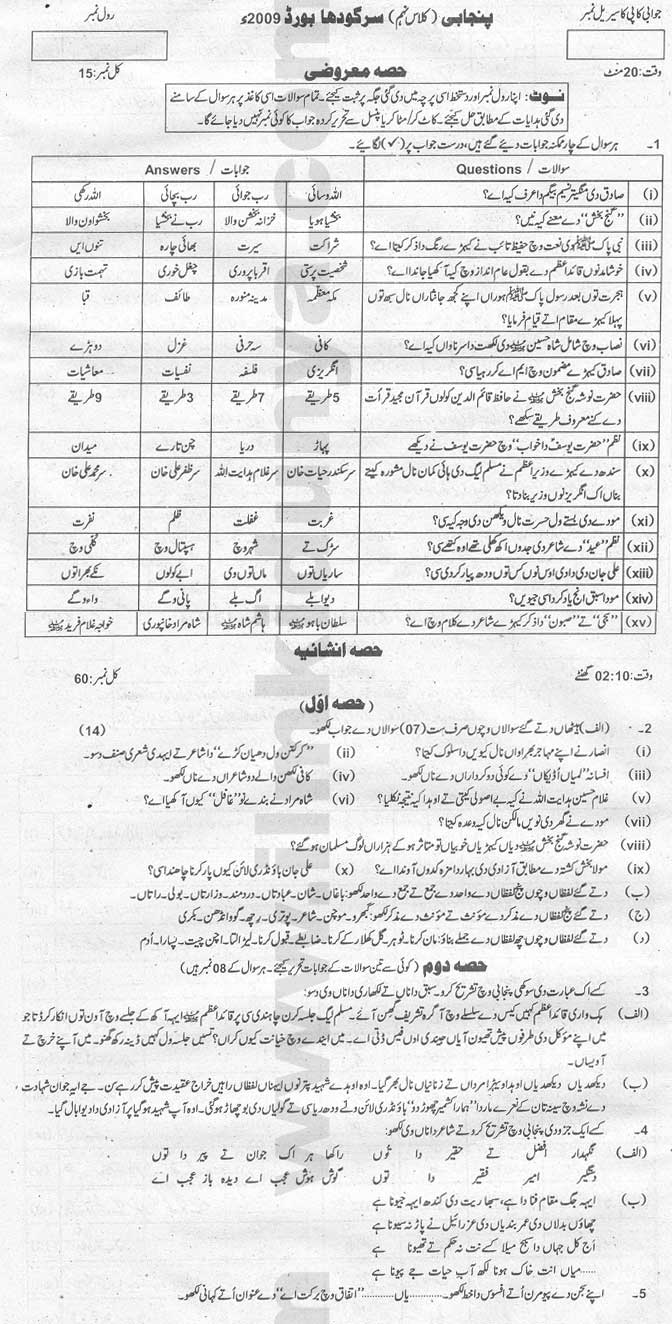 جوابی کاپی کا سیریل نمبر
پنجابی (کلاس نہم) سرگودھا بورڈ 2009ء
رول نمبر
وقت: 20 منٹ
حصہ معروضی
کل نمبر: 15
نوٹ: اپنا رول نمبر اور دستخط اسی پرچہ میں دی گئی جگہ پر ثبت کیجئے۔ تمام سوالات اسی کاغذ پر ہر سوال کے سامنے
دی گئی ہدایات کے مطابق حل کیجئے۔ کاٹ کر / مٹا کر یا پنسل سے تحریر کردہ جواب کا کوئی نمبر نہیں دیا جائے گا۔
1۔ ہر سوال کے چار ممکنہ جوابات دیئے گئے ہیں، درست جواب پر (✓) لگائیے۔
سوالات / Questions جوابات / Answers
(i) صادق دی منگیتر نسیم بیگم دا عرف کیہ اے؟ اللہ وسائی رب جوائی رب بچائی اللہ رکھی
(ii) "گنج بخش" دے معنے کیہ نیں؟ بخشیا ہویا خزانہ بخشن والا رب نے بخشیا بخشواون والا
(iii) نبی پاک ﷺ دی نعت وچ حفیظ تائب نے کیہڑے رنگ دا ذکر کیتا اے؟ شراکت سیرت بھائی چارہ تنوں ایں
(iv) خوشامد نوں قائداعظم دے بقول عام انداز وچ کیہ آکھیا جاندا اے؟ شخصیت پرستی اقربا پروری چغل خوری تہمت بازی
(v) ہجرت توں بعد رسول پاک ﷺ ہوراں اپنے کجھ جانثاراں نال سبھ توں مکہ معظمہ مدینہ منورہ طائف قبا
پہلا کیہڑے مقام اتے قیام فرمایا؟
(vi) نصاب وچ شامل شاہ حسین دی لکھت دا سرناواں کیہ اے؟ کافی سہ حرفی غزل دوہڑے
(vii) صادق کیہڑے مضمون وچ ایم اے کر رہیا سی؟ انگریزی فلسفہ نفسیات معاشیات
(viii) حضرت نوشہ گنج بخش نے حافظ قائم الدین کولوں قرآن مجید قرأت 5 طریقے 7 طریقے 3 طریقے 9 طریقے
دے کنے معروف طریقے سکھے؟
(ix) نظم "حضرت یوسف دا خواب" وچ حضرت یوسف نے دیکھے پہاڑ دریا چن تارے میدان
(x) سندھ دے کیہڑے وزیراعظم نے مسلم لیگ دی ہائی کمان نال مشورہ کیتے سر سکندر حیات خان سر غلام ہدایت اللہ سر ظفر علی خان سر محمد علی خان
بناں اک انگریز نوں وزیر بنا دتا؟
(xi) مودے دی بستے ول حسرت نال ویکھن دی وجہ کیہ سی؟ غربت غفلت ظلم نفرت
(xii) نظم "عید" دے شاعر دی جدوں اکھ کھلی تے اوہ کتھے سی؟ سڑک تے شہر وچ ہسپتال وچ گلی وچ
(xiii) علی جان دی دادی اوس نوں کس توں ودھ پیار کردی سی؟ ساریاں توں ماں توں وی ابے کولوں نکے بھرا توں
(xiv) مودا سبق انج یاد کردا سی جیویں؟ دیوا بلے اگ بلے پانی وگے واء وگے
(xv) "سجی" تے "صبون" دا ذکر کیہڑے شاعر دے کلام وچ اے؟ سلطان باہو ہاشم شاہ شاہ مراد خانپوری خواجہ غلام فرید
حصہ انشائیہ
وقت: 02:10 گھنٹے
کل نمبر: 60
(حصہ اوّل)
2۔ (الف) ہیٹھاں دتے گئے سوالاں وچوں صرف ست (07) سوالاں دے جواب لکھو۔ (14)
(i) انصار نے اپنے مہاجر بھراواں نال کیویں دا سلوک کیتا؟ (ii) "کر کتن ول دھیان کڑے" دا شاعر تے ایہدی شعری صنف دسو۔
(iii) افسانہ "لمیاں اُڈیکاں" دے کوئی دو کرداراں دے ناں لکھو۔ (iv) کافی لکھن والے دو شاعراں دے ناں لکھو۔
(v) غلام حسین ہدایت اللہ نے کیہ بے اصولی کیتی تے اوہدا کیہ نتیجہ نکلیا؟ (vi) شاہ مراد نے بندے نو "غافل" کیوں آکھیا اے؟
(vii) مودے نے گھر دی نویں مالکن نال کیہ وعدہ کیتا؟
(viii) حضرت نوشہ گنج بخش دیاں کیہڑیاں خوبیاں تو متاثر ہو کے ہزاراں لوگ مسلمان ہو گئے؟
(ix) مولا بخش کشتہ دے مطابق آزادی دی بہار دا مزہ کدوں آوندا اے؟ (x) علی جان باؤنڈری لائن کیوں پار کرنا چاہندا سی؟
(ب) دتے گئے لفظاں وچوں پنج لفظاں دے واحد دے جمع تے جمع دے واحد لکھو: باغاں۔ شان۔ عبادتاں۔ دردمند۔ وزارتاں۔ بولی۔ راتاں۔
(ج) دتے گئے پنج لفظاں دے مذکر دے مؤنث تے مؤنث دے مذکر لکھو: گبھرو۔ موچن۔ شاعر۔ پوتری۔ رچھ۔ گوانڈھن۔ بکری
(د) دتے گئے لفظاں وچوں چھ لفظاں دے جملے بناؤ: مان کرنا۔ نوہر۔ گل کھلار کے کرنا۔ ضابطے۔ قبول کرنا۔ لیڑا لتا۔ اچن چیت۔ پسارا۔ اُدم
حصہ دوم (کوئی سے تین سوالات کے جوابات تحریر کیجئے۔ ہر سوال کے 08 نمبر ہیں)
3۔ کسے اک عبارت دی سوکھی پنجابی وچ تشریح کرو۔ سبق دا ناں تے لکھاری دا ناں وی دسو:
(الف) ہک واری قائداعظم کہیں کیس دے سلسلے وچ آگرہ تشریف گھن آئے۔ مسلم لیگ جلسہ کرن چاہندی سی پر قائداعظم ایہہ آکھ کے جلسے وچ آون توں انکار کر ڈتا جو
میں اپنے مؤکل دی طرفوں پیش تھیون آیاں جیندی اوں فیس ڈتی اے۔ میں ایندے وچ خیانت کیوں کراں؟ تسیں جلسہ ول کہیں ڈینہہ رکھ گھنو۔ میں آپنے خرچ تے
آویساں۔
(ب) دیکھدیاں دیکھدیاں اوہدا ویہڑا مرداں تے زنانیاں نال بھر گیا۔ اوہ اوہدے شہید پتر نوں ایہناں لفظاں راہیں خراج عقیدت پیش کر رہے سن۔ جے ایہ جوان شہادت
دے نشہ وچ سینہ تان کے نعرے ماردا "ہمارا کشمیر چھوڑ دو" باؤنڈری لائن نے ودھ ریا سی تے گولیاں دی بوچھاڑ ہو گئی۔ اوہ آپ شہید ہو گیا پر آزادی دا دیوا بال گیا۔
4۔ کسے ایک جزو دی پنجابی وچ تشریح کرو تے شاعر دا ناں وی لکھو:
(الف) نگہدار افضل تے حقیر دا توں راکھا ہر اک جوان تے پیر دا توں
دستگیر امیر فقیر دا توں گوش ہوش عجب اے دیدہ باز عجب اے
(ب) ایہہ جگ مقام فنا دا ہے، سبھا ریت دی کندھ ایہہ جیونا ہے
چھاؤں بدلاں دی عمر بندیاں دی عزرائیل نے پاڑنہ سیونا ہے
اَج کل جہاں دا سج میلا کسے نت نہ حکم تے تھیونا ہے
میاں انت خاک ہونا لکھ آب حیات جے پیونا ہے
5۔ اپنے سجن دے پیو مرن اُتے افسوس دا خط لکھو۔............یاں............"اتفاق وچ برکت اے" دے عنوان اُتے کہانی لکھو۔